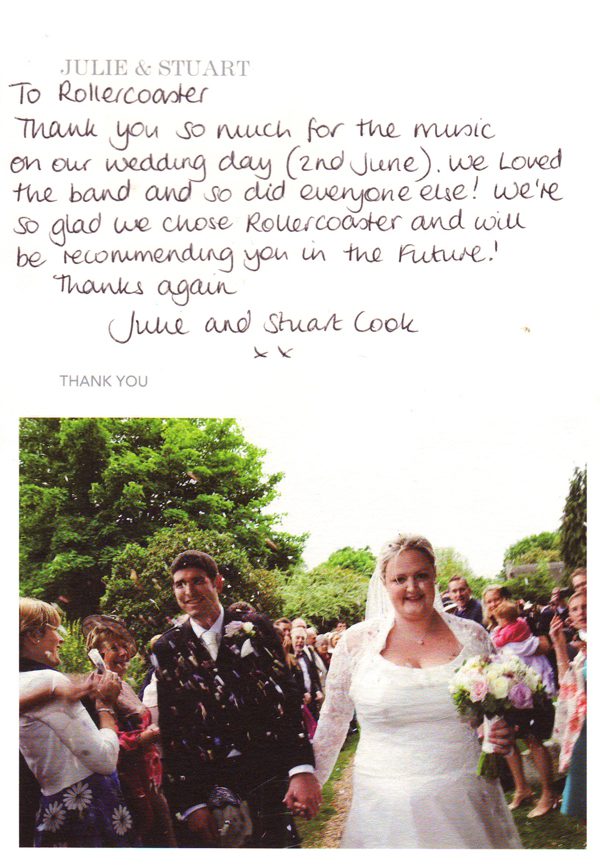 JULIE & STUART
To Rollercoaster
Thank you so much for the music
on our wedding day (2nd June). We Loved
the band and so did everyone else! We're
so glad we chose Rollercoaster and will
be recommending you in the future!
Thanks again
Julie and Stuart Cook
x x
THANK YOU